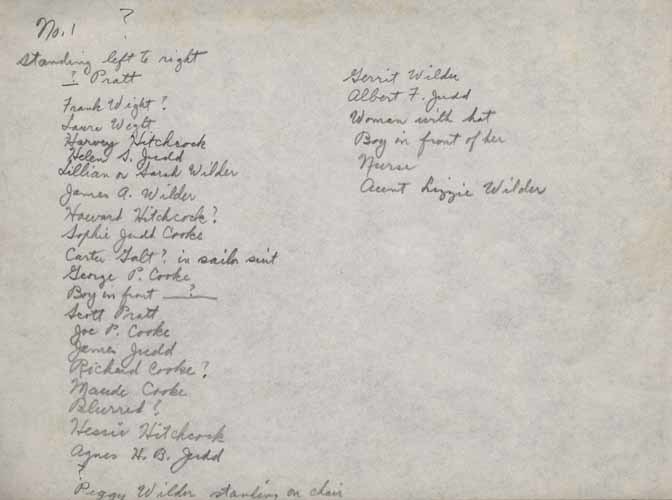 No. 1 ?
standing left to right
? Pratt
Frank Wight?
Laura Wight
Harvey Hitchcock
Helen S. Judd
Lillian or Sarah Wilder
James A. Wilder
Howard Hitchcock?
Sophie Judd Cooke
Carter Galt? in sailor suit
George P. Cooke
Boy in front ?
Scott Pratt
Joe P. Cooke
James Judd
Richard Cooke?
Maude Cooke
Blurred?
Hessie Hitchcock
Agnes H. B. Judd
?
Peggy Wilder standing on chair
Gerrit Wilder
Albert F. Judd
Woman with hat
Boy in front of her
Nurse
Aunt Lizzie Wilder